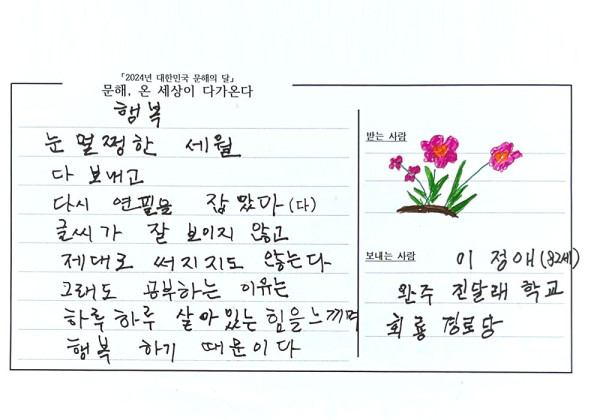 「2024년 대한민국 문해의 달」
문해, 온 세상이 다가온다
행복
눈 멀쩡한 세월
다 보내고
다시 연필을 잡았마 (다)
글씨가 잘 보이지 않고
제대로 써지지도 않는다
그래도 공부하는 이유는
하루하루 살아있는 힘을 느끼며
행복 하기 때문이다
받는 사람
보내는 사람 이정애(82세)
완주 진달래 학교
회룡 경로당